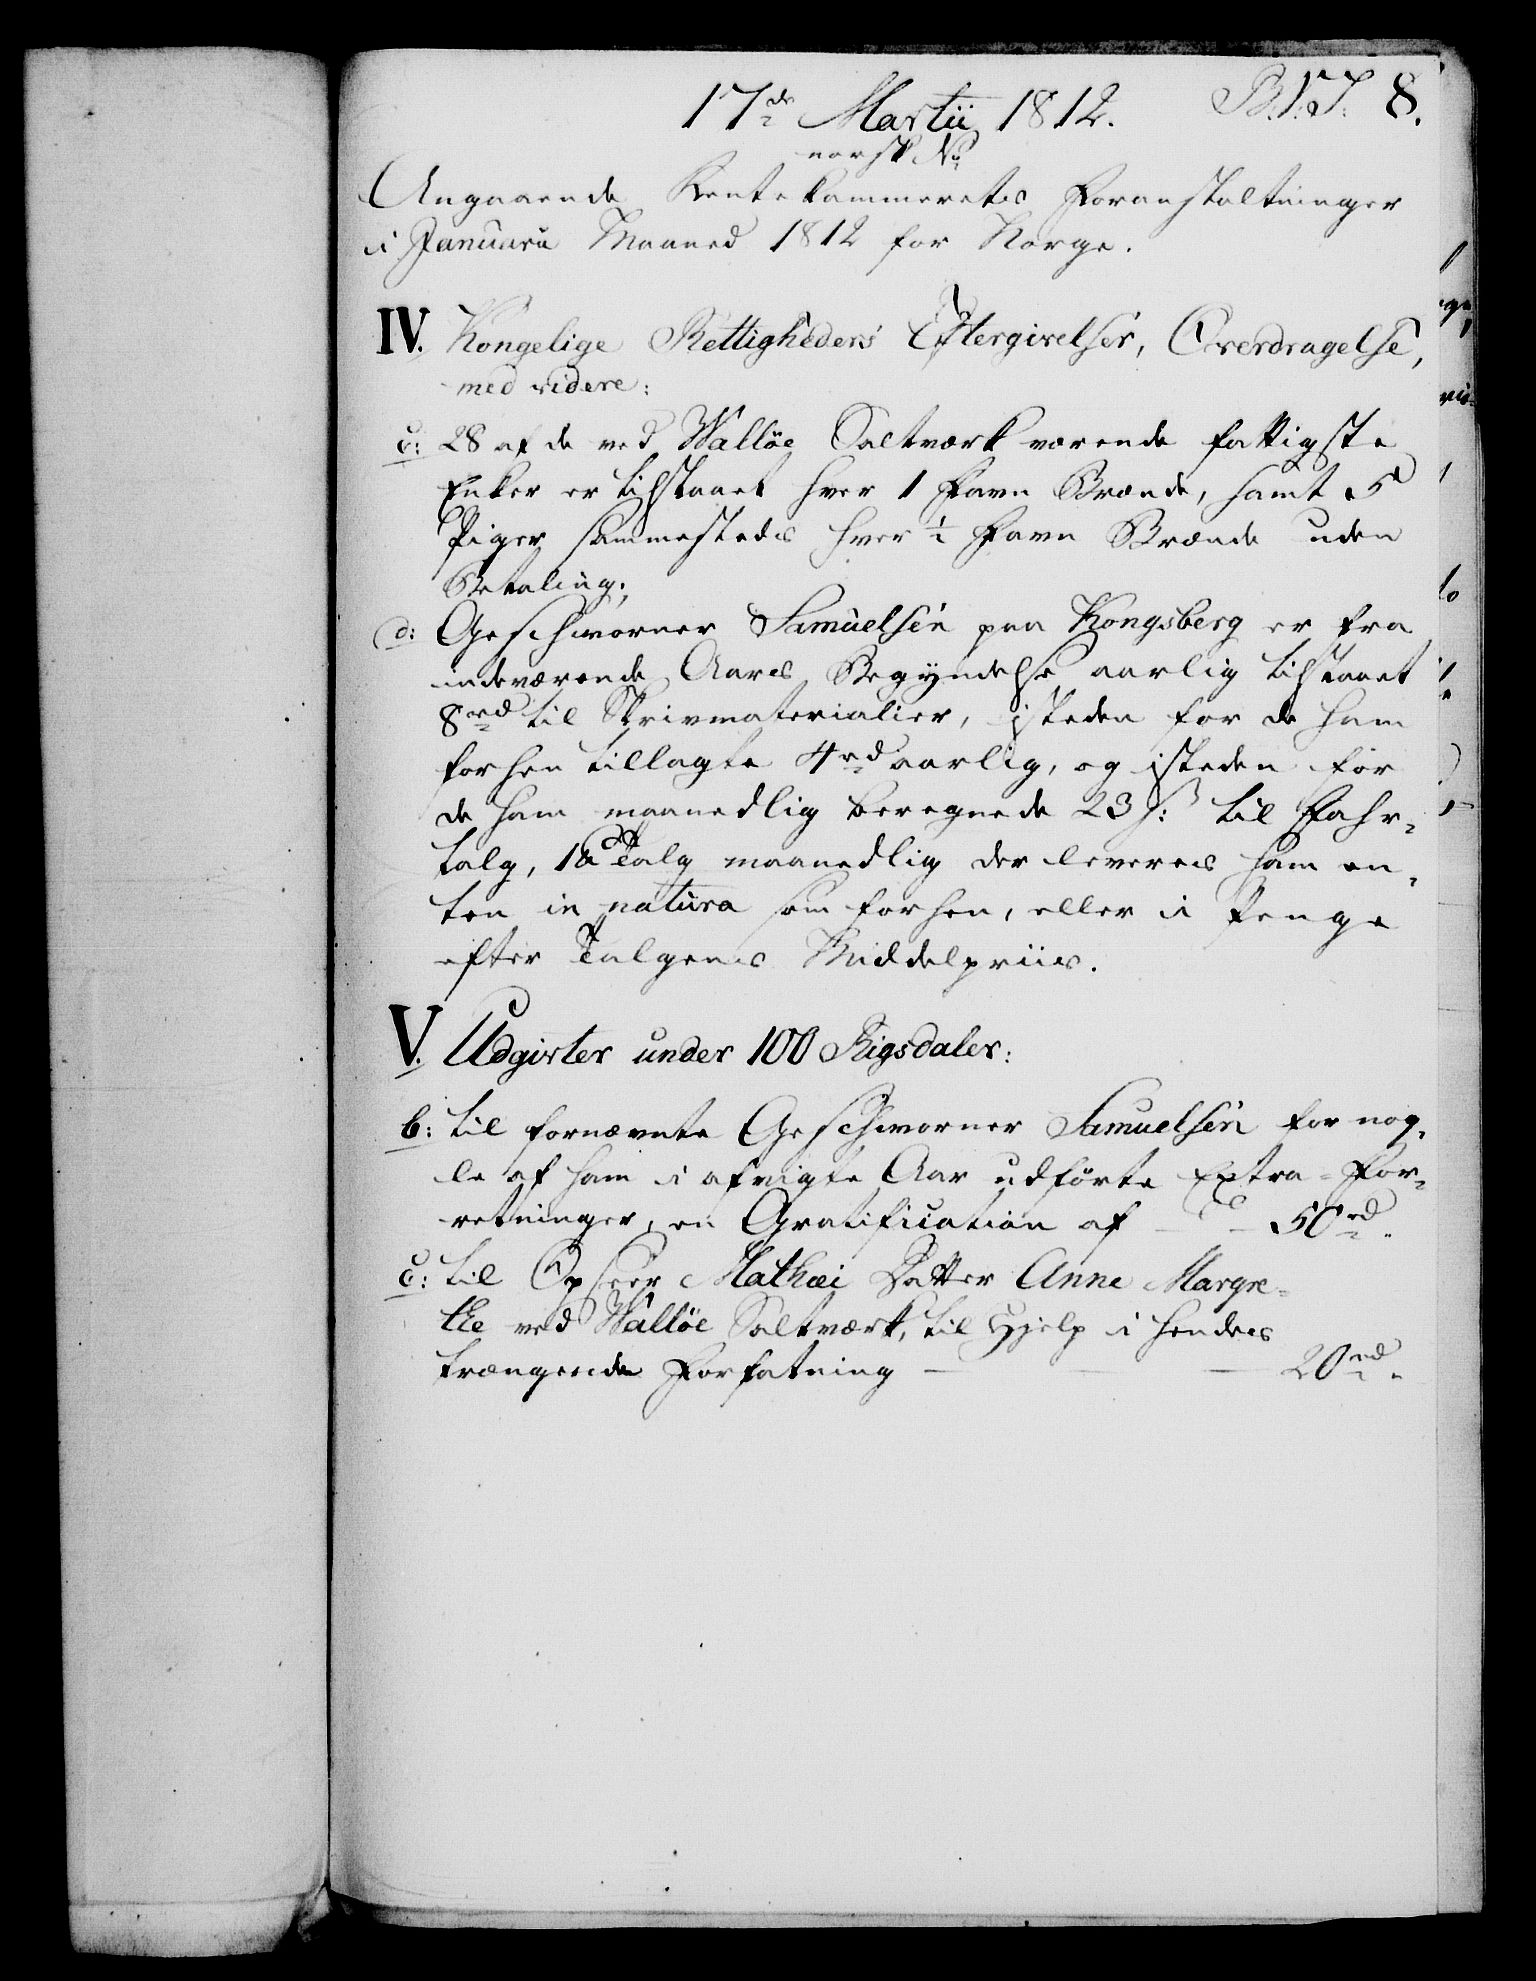 17de Martii 1812. B.V.T: 8.
norsk No
Angaaende Rentekammerets Foranstaltninger
i Januarii Maaned 1812 for Norge.
IV. Kongelige Rettigheders Eftergivelser, Overdragelse,
med videre:
c: 28 af de ved Walløe Saltværk værende fattigste
Enker er tilstaaet hver 1 Favn Brænde, samt 5
Piger sammesteds hver ½ Favn Brænde uden
Betaling;
d: Geschworner Samuelsen paa Kongsberg er fra
indeværende Aars Begyndelse aarlig tilstaaet
8rd til Skrivmaterialier, isteden for de ham
forhen tillagte 4rd aarlig, og isteden for
de ham maanedlig beregnede 23 s: til Fahr-
talg, 1 Talg maanedlig der leveres ham en-
ten in natura som forhen, eller i Penge
efter Talgens Middelpriis.
V. Udgivter under 100 Rigsdaler:
b: til fornævnte Geschworner Samuelsen for nog-
le af ham i afvigte Aar udførte Extra-For-
retninger, en Gratification af — 50rd.
c: til Opseer Mathæi Datter Anne Margre-
the ved Walløe Saltværk, til Hjelp i hendes
trængende Forfatning — — — 20rd.